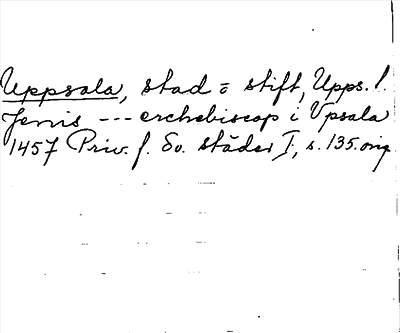 Uppsala, stad o stift, Upps. l.
Jenis --- erchebiscop i Vpsala
1457 Priv. f. Sv. städer I, s. 135. orig.